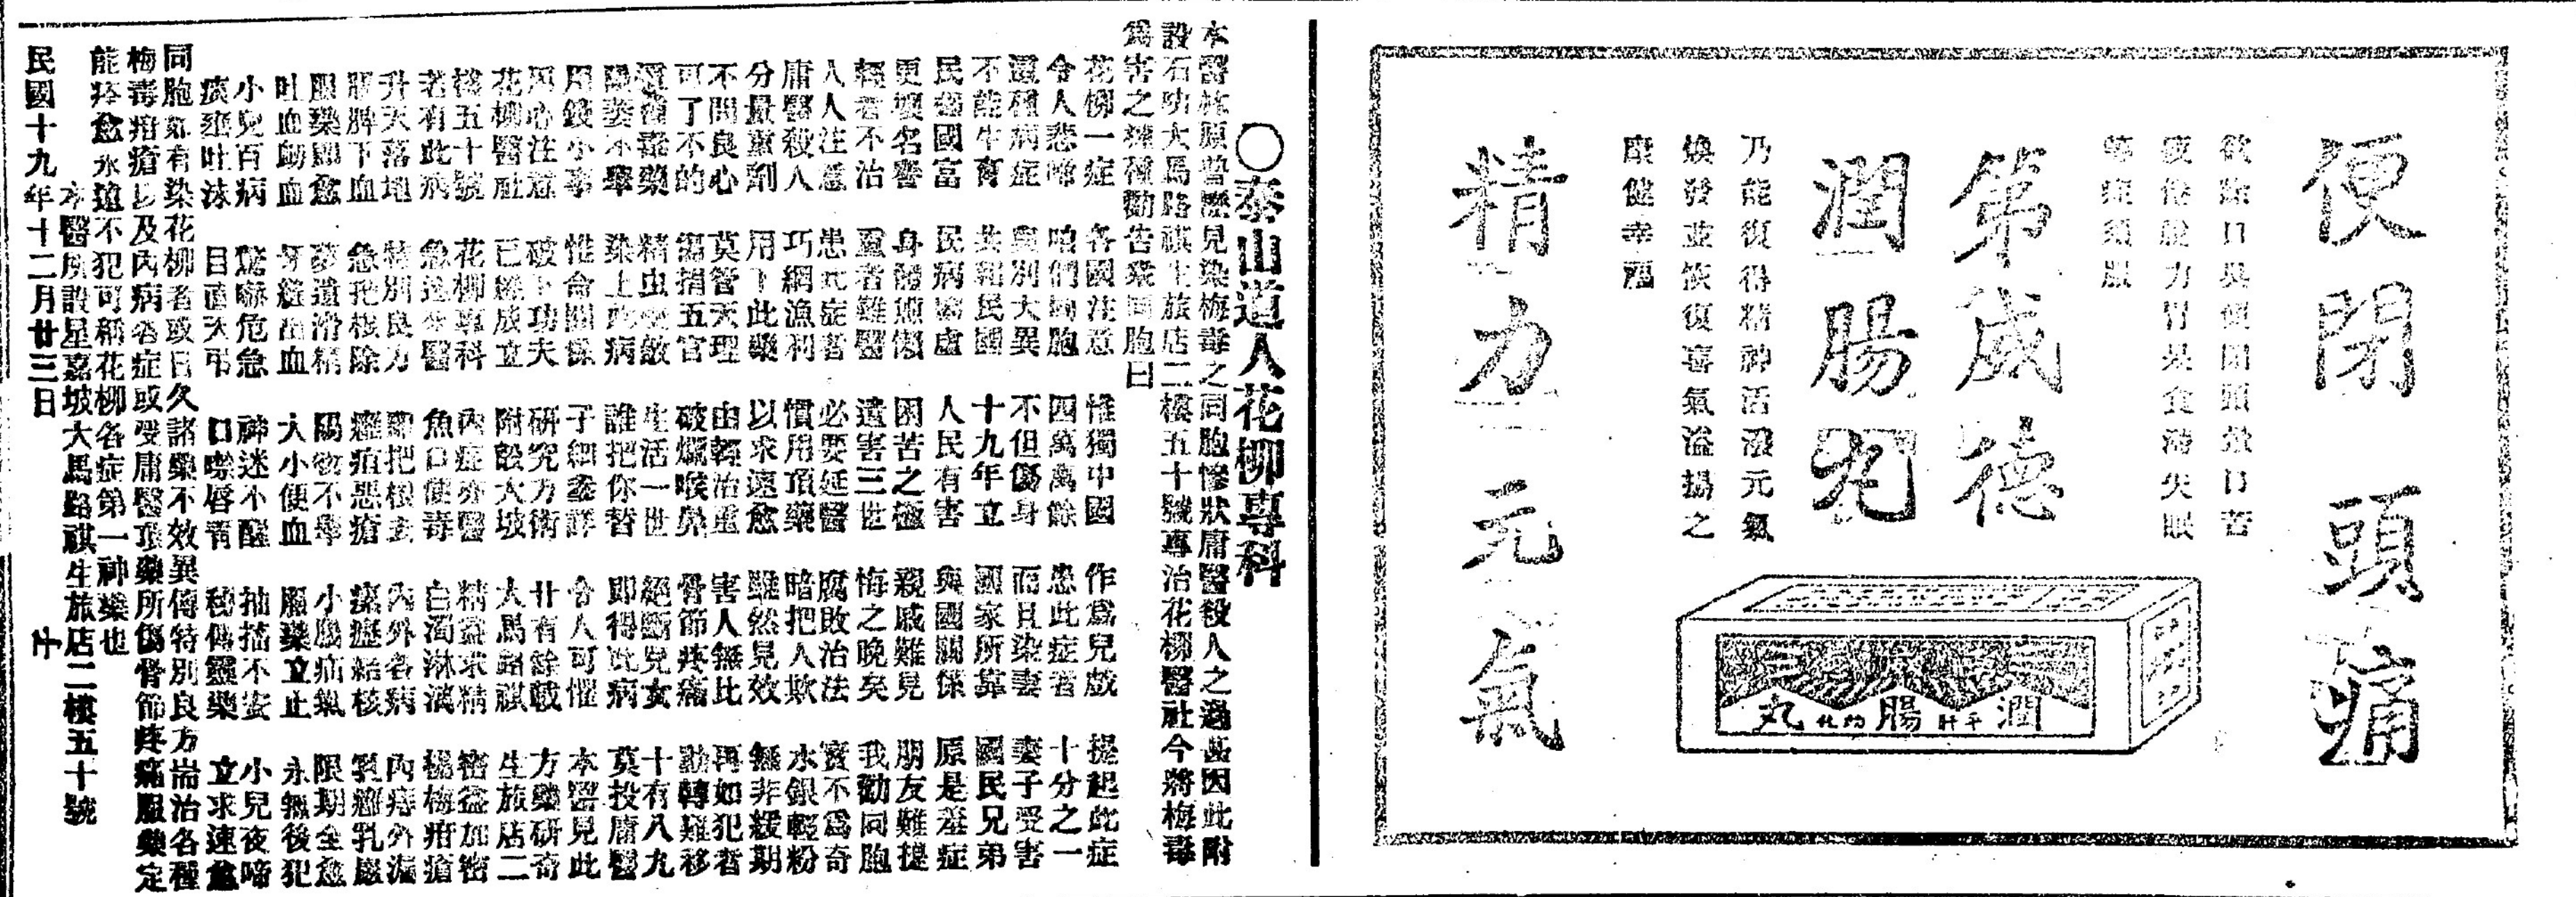 便閉頭痛
欲除口臭便閉頭暈口苦
疲倦脫力胃呆食滯失眠
等症須服
第威德
潤腸丸
乃能復得精神活潑元氣
煥發並恢復喜氣溢揚之
康健幸福
精力元氣
潤平肝腸丸
○泰山道人花柳專科
本醫林原曾歷見染梅毒之同胞慘狀庸醫殺人之過甚因此附
設石叻大馬路祺生旅店二樓五十號專治花柳醫社今將梅毒
爲害之種種勸告衆同胞曰
花柳一症 各國注意 惟獨中國 作爲兒戲 提起此症
令人悲啼 咱們同胞 四萬萬餘 患此症者 十分之一
這種病症 與別大異 不但傷身 而且染妻 妻子受害
不能生育 共和民國 十九年立 國家所靠 國民兄弟
民強國富 民病國虛 人民有害 與國關係 原是羞症
更壞名譽 身體煎懶 困苦之極 親戚難見 朋友難提
輕者不治 重者難醫 遺害三世 悔之晚矣 我勸同胞
人人注意 患此症者 必要延醫 腐敗治法 實不爲奇
庸醫殺人 巧網漁利 慣用頂藥 暗把人欺 水銀輕粉
分量重劑 用下此藥 以求速愈 雖然見效 無非緩期
不問良心 莫管天理 由輕治重 害人無比 再如犯者
可了不的 傷損五官 破爛喉鼻 骨節疼痛 動轉難移
還有毒藥 精虫受敵 生活一世 絕斷兒女 十有八九
陽萎不舉 染上此病 誰把你替 即得此病 莫投庸醫
用錢小事 惟命關係 子細參詳 令人可懼 本醫見此
用心注意 破下功夫 研究方術 廿有餘載 方藥研奇
花柳醫社 已經成立 附設大坡 大馬路祺 生旅店二
樓五十號 花柳專科 內症亦醫 精益求精 密益加密
若有此病 急速來醫 魚口便毒 白濁淋漓 楊梅疳瘡
升天落地 特別良方 即把根去 內外各病 內痔外漏
腸脾下血 急把核除 癰疽惡瘡 瘰癧結核 乳癰乳巖
服藥即愈 夢遺滑精 陽痿不舉 小腸疝氣 限期全愈
吐血衄血 牙縫出血 大小便血 服藥立止 永無後犯
小兒百病 驚嚇危急 神迷不醒 抽搐不安 小兒夜啼
痰壅吐沫 目直天弔 口噤唇靑 秘傳靈藥 立求速愈
同胞如有染花柳者或日久諸藥不效異傳特別良方耑治各種
梅毒疳瘡以及內病各症或受庸醫頂藥所傷骨節疼痛服藥定
能痊愈永遠不犯可稱花柳各症第一神藥也
本醫所設星嘉坡大馬路祺生旅店二樓五十號
民國十九年十二月廿三日